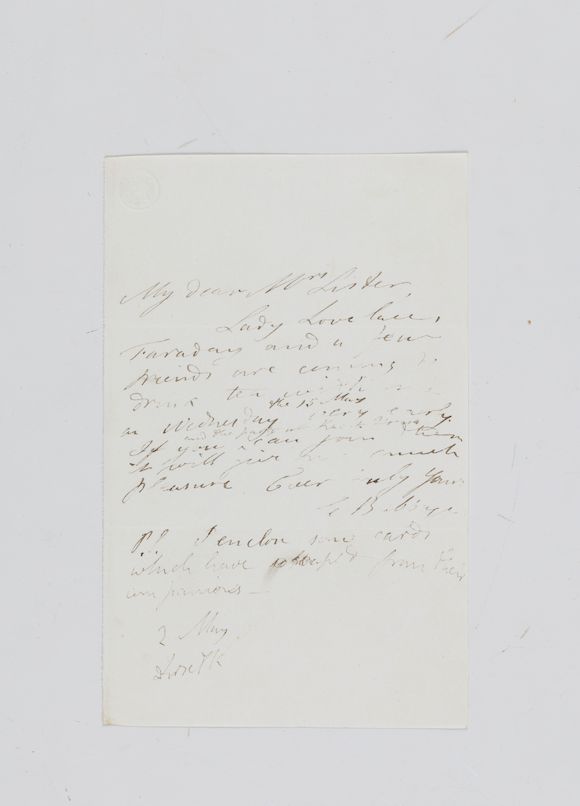 My dear Mrs Lister,
Lady Lovelace,
Faraday and a few
friends are coming to
drink tea with me
on Wednesday the 15 May very early.
If you and the
can join them
It will give me much
pleasure. Ever truly Yours
C Babbage
P.S. I enclose some cards
which have escaped from their
companions —
2 May